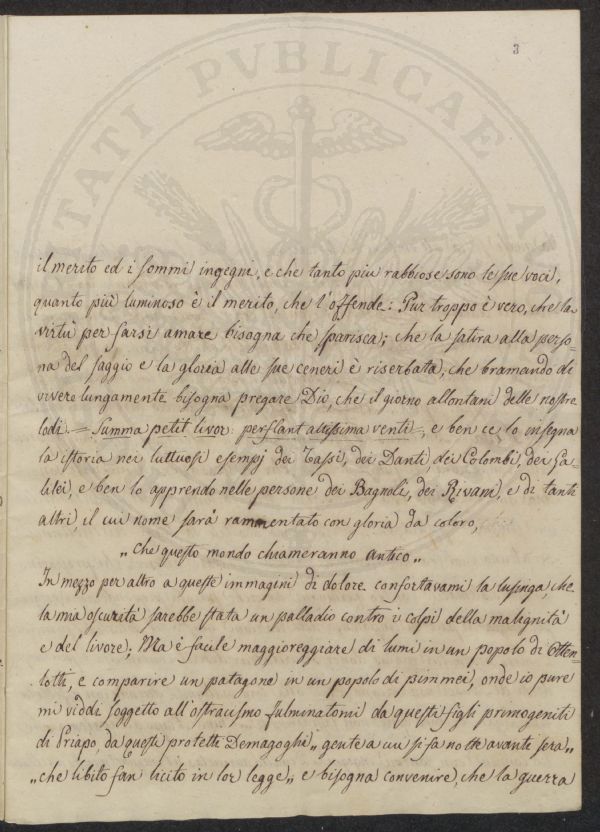 3
il merito ed i sommi ingegni, e che tanto piu rabbiose sono le sue voci,
quanto più luminoso è il merito, che l'offende: Pur troppo è vero, che la
virtù per farsi amare bisogna che sparisca; che la satira alla perso-
na del saggio e la gloria alle sue ceneri è riserbata, che bramando di
vivere lungamente bisogna pregare Dio, che il giorno allontani delle nostre
lodi = Summa petit livor: perflant altissima venti =, e ben ce lo insegna
la istoria nei luttuosi esempj dei Tassi, dei Danti, dei Colombi, dei Ga-
lilei, e ben lo apprendo nelle persone dei Bagnoli, dei Rivani, e di tanti
altri, il cui nome sarà rammentato con gloria da coloro,
„ Che questo mondo chiameranno antico „
In mezzo per altro a queste immagini di dolore confortavami la lusinga che
la mia oscurità sarebbe stata un palladio contro i colpi della malignità
e del livore; Ma è facile maggioreggiare di lumi in un popolo di Otten-
totti, e comparire un patagone in un popolo di pimmei, onde io pure
mi viddi soggetto all'ostracismo fulminatomi da questi figli primogeniti
di Priapo, da questi protetti Demagoghi „ gente a cui si fa notte avanti sera „
„ che libito fan licito in lor legge „ e bisogna convenire, che la guerra
TATI PVBLICAE